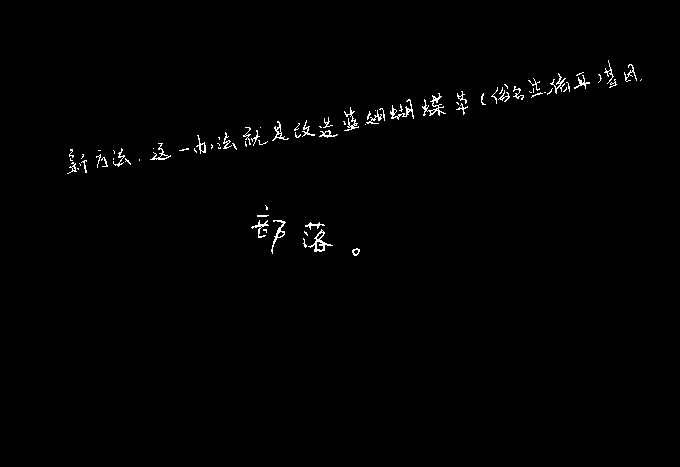 新方法.这一办法就是改造蓝翅蝴蝶草(俗名兰猪耳)基因
部落。